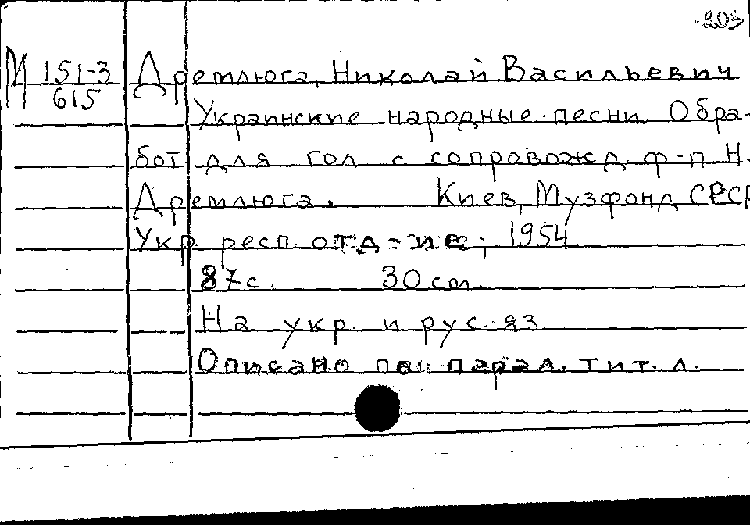 203
М 151-3
615
Дремлюга, Николай Васильевич
Украинские народные песни. Обра-
бот. для гол. с сопровожд. ф-п. Н.
Дремлюга. Киев, Музфонд СССР
Укр. респ. отд-ие, 1954
87 с. 30 см.
На укр. и рус. яз.
Описано по парал. тит. л.